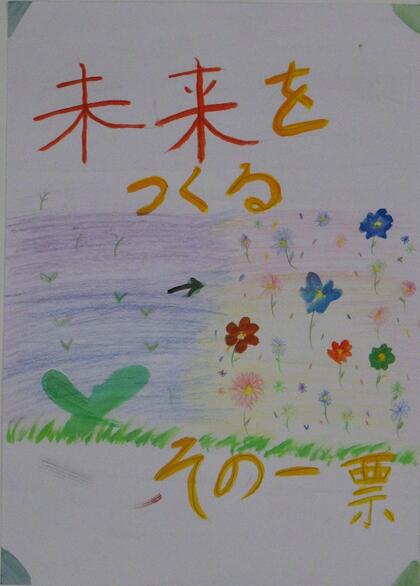 未来を
つくる
その一票